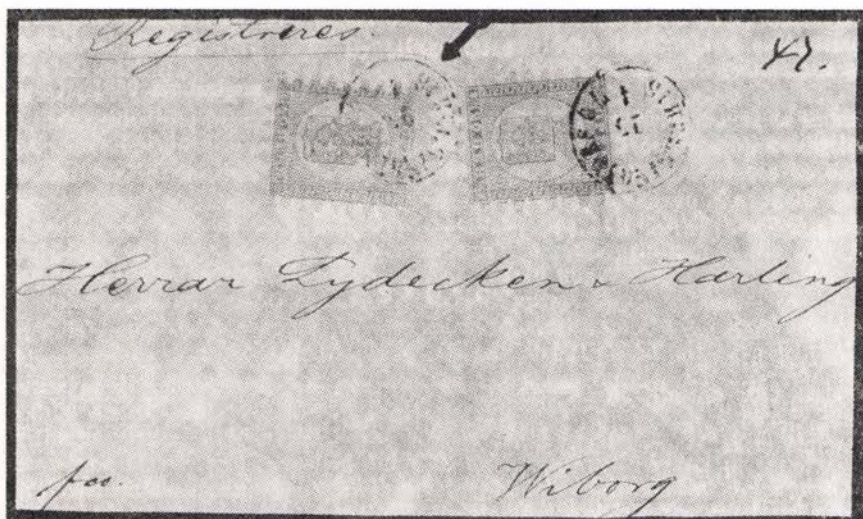 Registreres.
47.
Herrar Lydecken & Harling
fco.
Wiborg